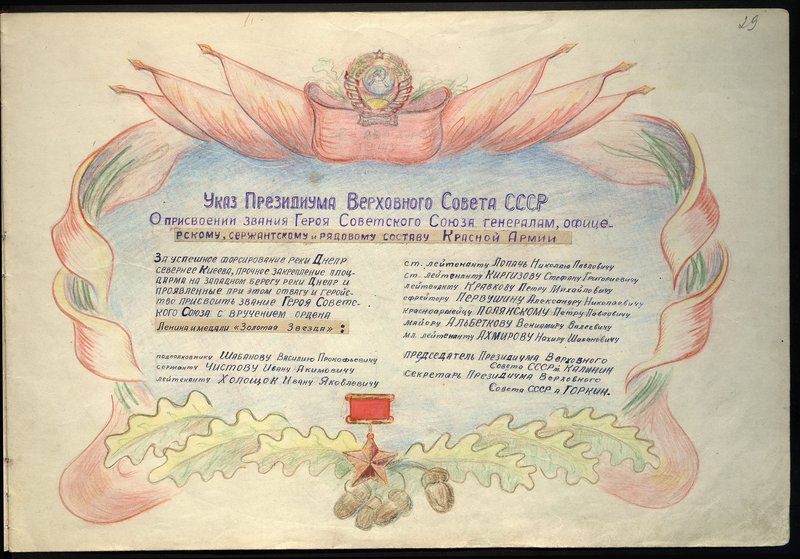 29
Указ Президиума Верховного Совета СССР
О присвоении звания Героя Советского Союза генералам, офице-
рскому, сержантскому и рядовому составу Красной Армии
За успешное форсирование реки Днепр
севернее Киева, прочное закрепление плац-
дарма на западном берегу реки Днепр и
проявленные при этом отвагу и геройс-
тво присвоить звание Героя Советс-
кого Союза с вручением ордена
Ленина и медали «Золотая Звезда»:
подполковнику Шабанову Василию Прокофьевичу
сержанту Чистову Ивану Акимовичу
лейтенанту Холощок Ивану Яковлевичу
ст. лейтенанту Лопачь Николаю Павловичу
ст. лейтенанту Киргизову Стефану Григориевичу
лейтенанту Кравкову Петру Михайловичу
ефрейтору Первушину Александру Николаевичу
красноармейцу Полянскому Петру Павловичу
майору Альбеткову Вениамиру Валеевичу
мл. лейтенанту Ахмирову
Председатель Президиума Верховного
Совета СССР М. Калинин
Секретарь Президиума Верховного
Совета СССР А Горкин.